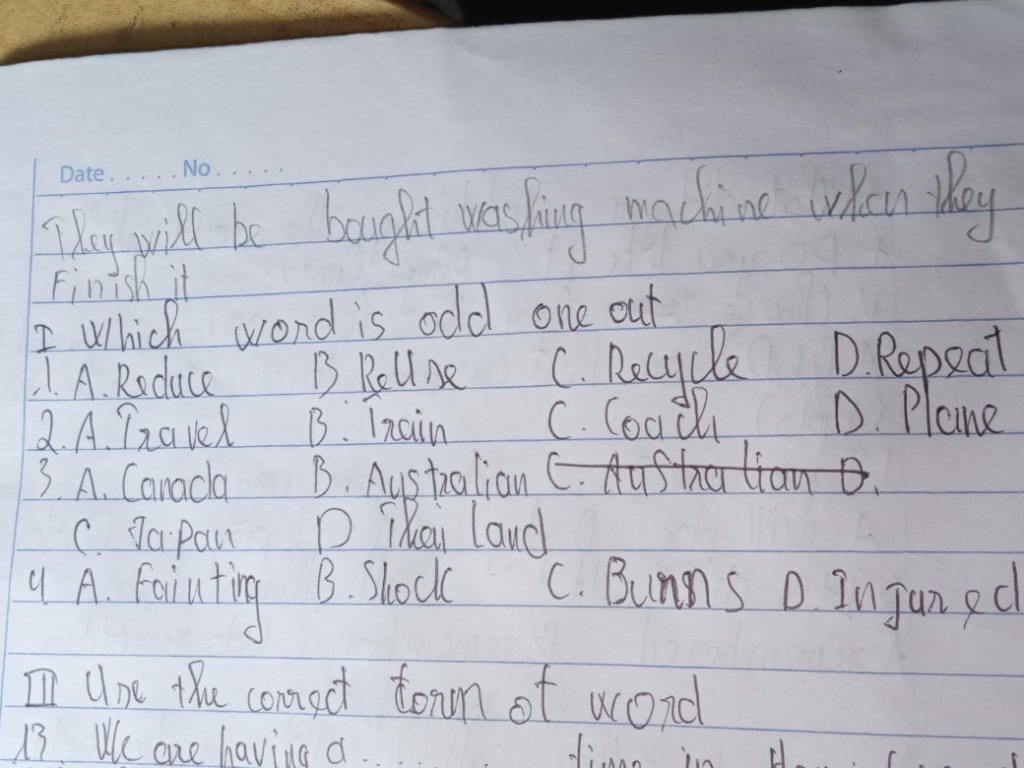 Date ..... No .....
They will be bought washing machine when they
Finish it
I Which word is odd one out
1. A. Reduce B Reuse C. Recycle D. Repeat
2. A. Travel B. Train C. Coach D. Plane
3. A. Canada B. Australian C. Australian D.
C. Japan D Thai land
4 A. Fainting B. Shock C. Burns D. Injured
III Use the correct form of word
13. We are having a ........ time in